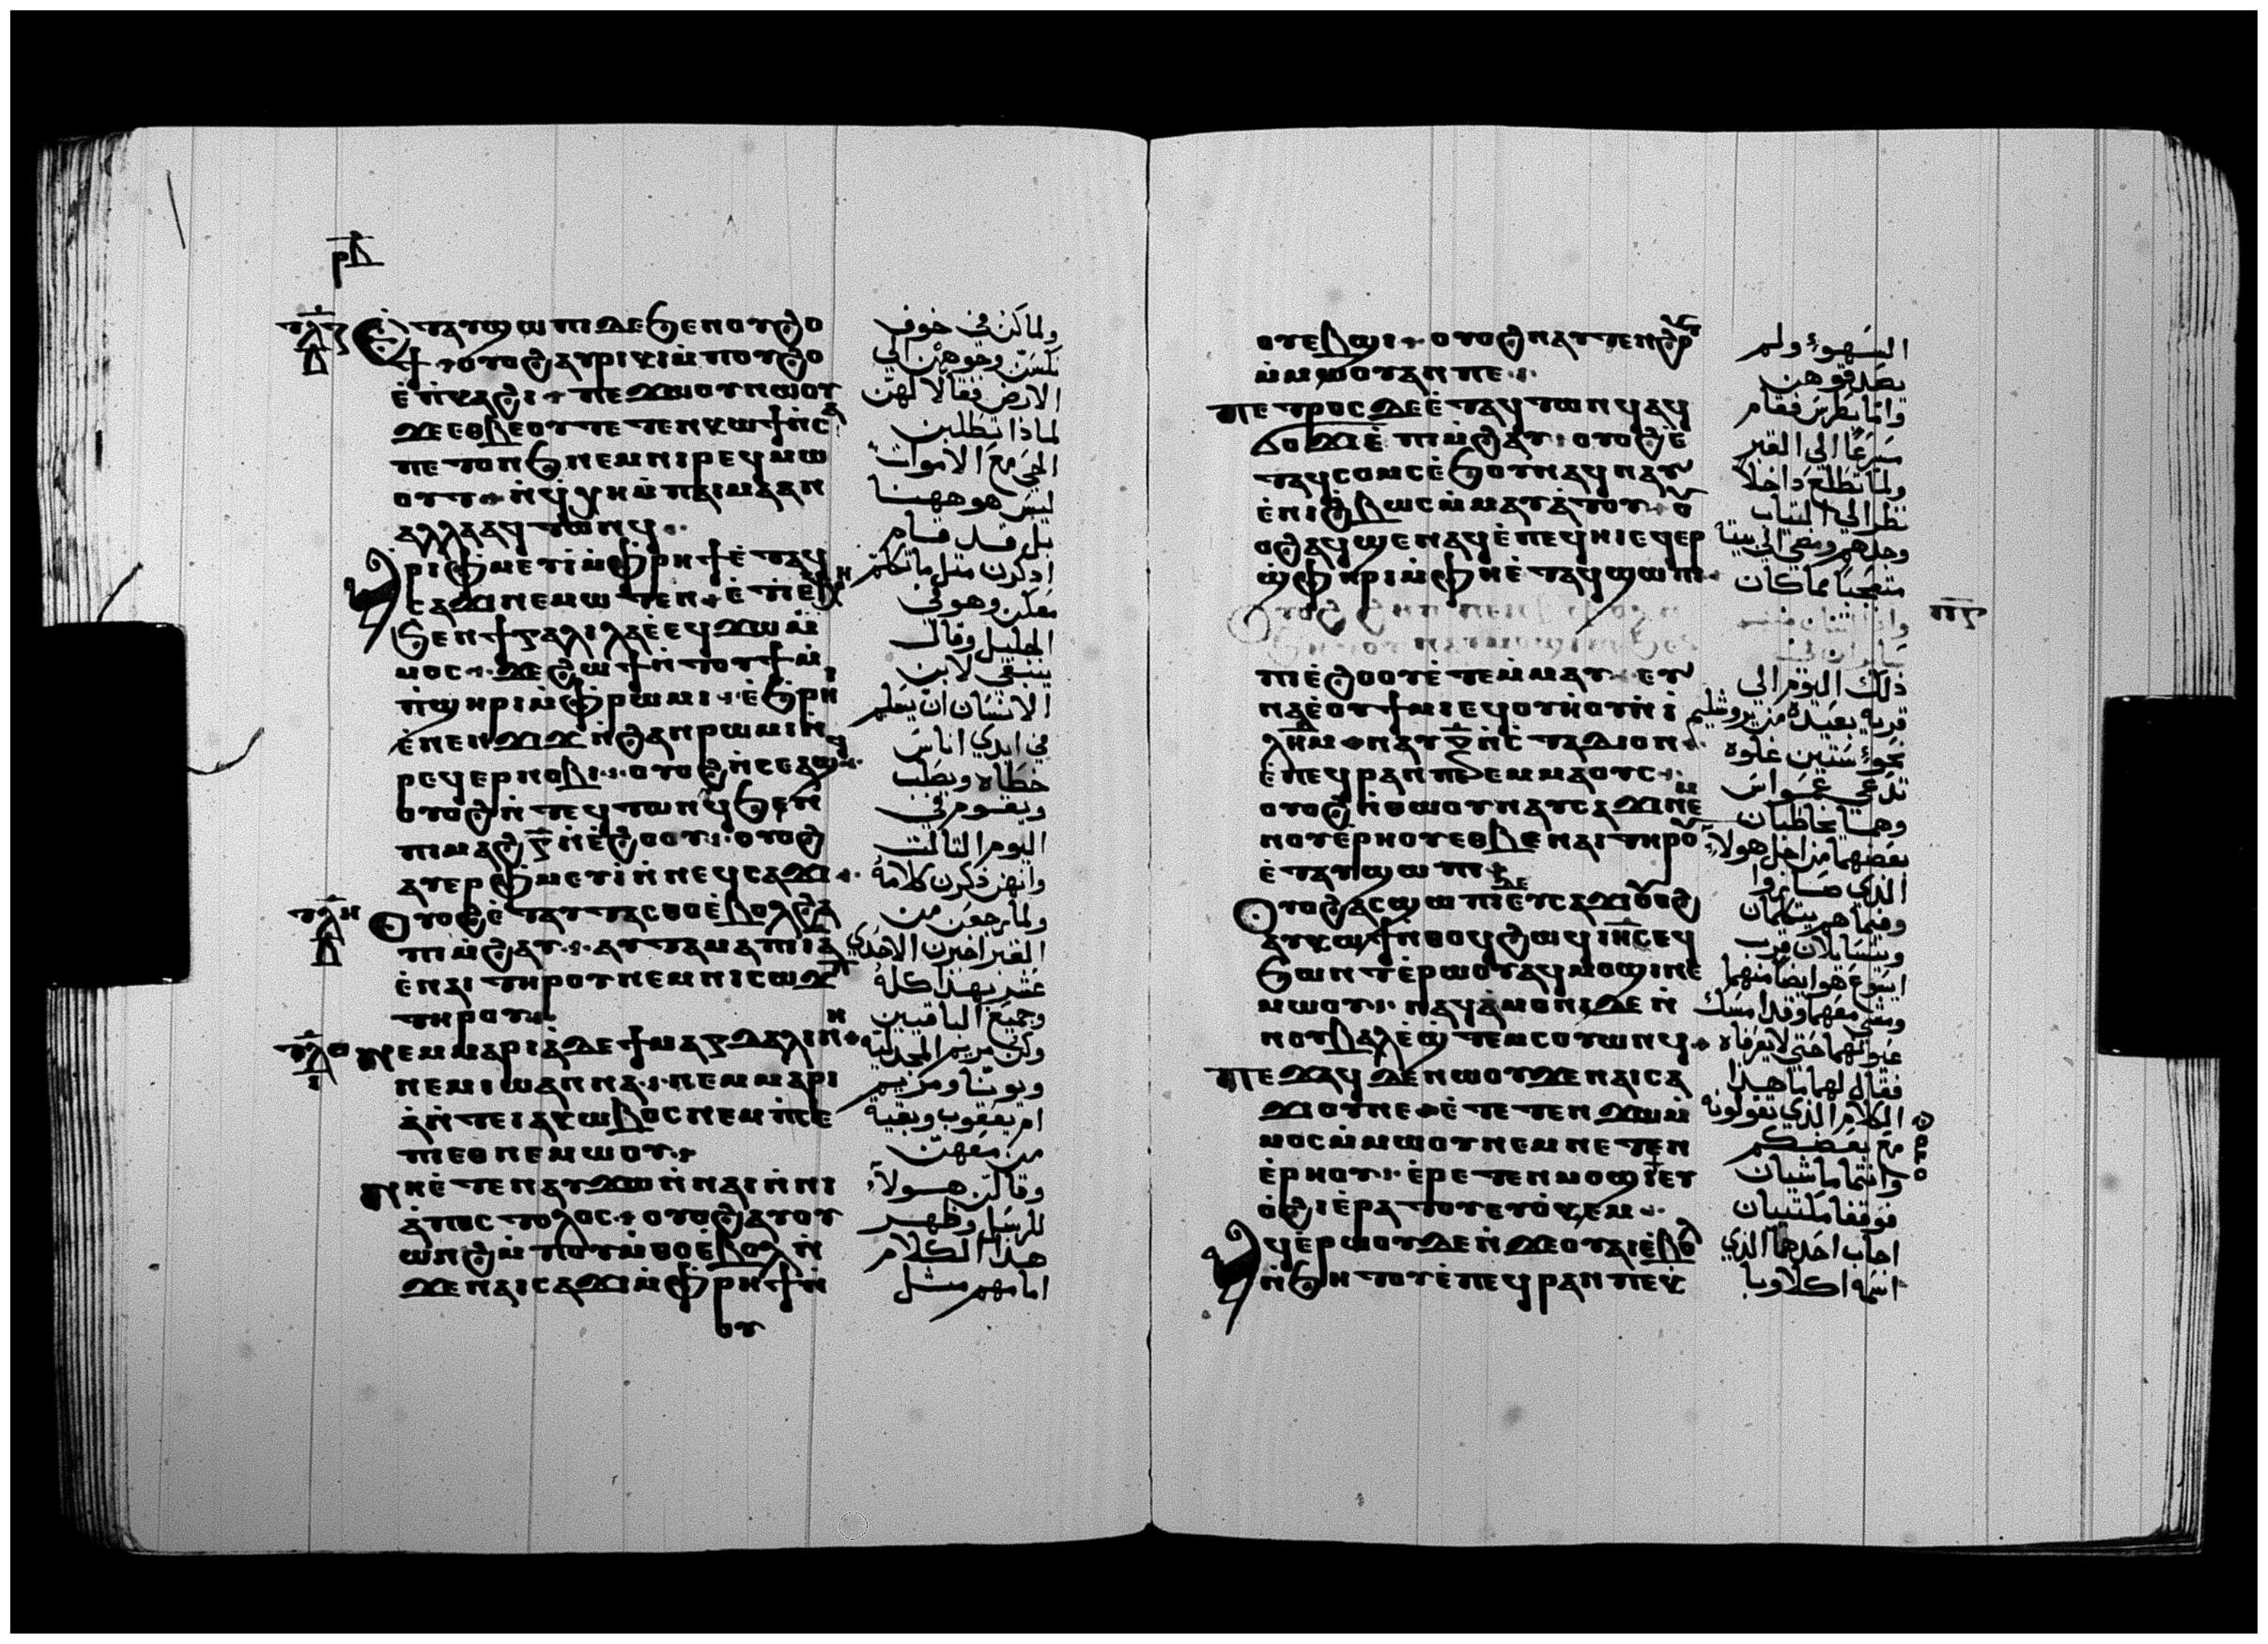 ⲧⲗⲍ
Ⲉⲧⲁⲩϣⲱⲡⲓ ⲇⲉ ϧⲉⲛ ⲟⲩϩⲟ
ϯ ⲟⲩⲟϩ ⲁⲩⲣⲓⲕⲓ ⲙ̀ⲡⲟⲩϩⲟ
ⲉ̀ⲡⲕⲁϩⲓ ⲡⲉϫⲱⲟⲩ ⲛⲱⲟⲩ
ϫⲉ ⲉⲑⲃⲉⲟⲩ ⲧⲉⲧⲉⲛⲕⲱϯ ⲛ̀ⲥⲁ
ⲡⲉⲧⲟⲛϧ ⲛⲉⲙ ⲛⲓⲣⲉϥⲙⲱ
ⲟⲩⲧ ⲛ̀ϥⲭⲏ ⲙ̀ⲡⲁⲓⲙⲁ ⲁⲛ
ⲁⲗⲗⲁ ⲁϥⲧⲱⲛϥ
Ⲁⲣⲓⲫⲙⲉⲩⲓ ⲙ̀ⲫⲣⲏϯ ⲉ̀ⲧⲁϥ
ⲥⲁϫⲓ ⲛⲉⲙⲱⲧⲉⲛ ⲉ̀ⲧⲓ ⲉϥⲭⲏ
ϧⲉⲛ ϯⲅⲁⲗⲓⲗⲉⲁ ⲉϥϫⲱ ⲙ̀
ⲙⲟⲥ ϫⲉ ϩⲱϯ ⲛ̀ⲧⲟⲩϯ ⲙ̀
ⲡϣⲏⲣⲓ ⲙ̀ⲫⲣⲱⲙⲓ ⲉ̀ϧⲣⲏⲓ
ⲉ̀ⲛⲉⲛϫⲓϫ ⲛ̀ϩⲁⲛⲣⲱⲙⲓ ⲛ̀
ⲣⲉϥⲉⲣⲛⲟⲃⲓ ⲟⲩⲟϩ ⲛ̀ⲥⲉⲁϣϥ
ⲟⲩⲟϩ ⲛ̀ⲧⲉϥⲧⲱⲛϥ ϧⲉⲛ
ⲡⲓⲙⲁϩ ⲅ̅ ⲛ̀ⲉ̀ϩⲟⲟⲩ ⲟⲩⲟϩ
ⲁⲩⲉⲣⲫⲙⲉⲩⲓ ⲛ̀ⲛⲉϥⲥⲁϫⲓ
ⲧⲗⲏ
Ⲟⲩⲟϩ ⲉ̀ⲧⲁⲩⲧⲁⲥⲑⲟ ⲉ̀ⲃⲟⲗϩⲁ
ⲡⲓⲙ̀ϩⲁⲩ ⲁⲩⲧⲁⲙⲁ ⲡⲓⲓⲁ̅
ⲉ̀ⲛⲁⲓ ⲧⲏⲣⲟⲩ ⲛⲉⲙ ⲡⲓⲥⲱϫⲡ
ⲧⲏⲣⲟⲩ
ⲧⲗⲑ
Ⲛⲉ ⲙⲁⲣⲓⲁ̀ ⲇⲉ ϯⲙⲁⲅⲇⲁⲗⲓⲛⲏ
ⲛⲉⲙ ⲓⲱⲁⲛⲛⲁ ⲛⲉⲙ ⲙⲁⲣⲓ
ⲁ̀ ⲛ̀ⲧⲉ ⲓⲁⲕⲱⲃⲟⲥ ⲛⲉⲙ ⲡ̀ⲥⲉ
ⲡⲓ ⲉⲑⲛⲉⲙⲱⲟⲩ
Ⲛⲏ ⲉ̀ⲧⲉⲛⲁⲩϫⲱ ⲛ̀ⲛⲁⲓ ⲛ̀ⲛⲓ
ⲁ̀ⲡⲟⲥⲧⲟⲗⲟⲥ ⲟⲩⲟϩ ⲁⲩⲟⲩ
ⲱⲛϩ ⲙ̀ⲡⲟⲩⲙ̀ⲑⲟ ⲉ̀ⲃⲟⲗ ⲛ̀
ϫⲉ ⲛⲁⲓⲥⲁϫⲓ ⲙ̀ⲫⲣⲏϯ ⲛ̀
ⲟⲩ
ولما كن في خوف
نكسن وجوههن الي
الارض فقالا لهن
لماذا تطلبن
الحي مع الاموات
ليس هو ههنا
بل قد قام
اذكرن مثل ما تكلم
معكن وهو في
الجليل وقال
ينبغي لابن
الانسان ان يسلم
في ايدي اناس
خطاه ويصلب
ويقوم في
اليوم الثالث
وانهن ذكرن كلامه
ولما رجعن من
القبر اخبرن الاحدي
عشر بهذا كله
وجميع الباقيين
وكن مريم المجدليه
ويونا ومريم
ام يعقوب وبقية
من معهن
وقالن هولاء
للرسل وظهر
هذا الكلام
امامهم مثل
ⲟⲩⲉⲃϣⲓ ⲟⲩⲟϩ ⲛⲁⲩⲧⲉⲛϩⲟⲩⲧ
ⲙ̀ⲙⲱⲟⲩ ⲁⲛ ⲡⲉ
Ⲡⲉⲧⲣⲟⲥ ⲇⲉ ⲉ̀ⲧⲁϥⲧⲱⲛϥ ⲁϥ
ϭⲟϫⲓ ⲉ̀ⲡⲓⲙ̀ϩⲁⲩ ⲟⲩⲟϩ ⲉ̀
ⲧⲁϥⲥⲟⲙⲥ ⲉ̀ϧⲟⲩⲛ ⲁϥⲛⲁⲩ
ⲉ̀ⲛⲓϩ̀ⲃⲱⲥ ⲙ̀ⲙⲁⲩⲁ̀ⲧⲟⲩ ⲟⲩ
ⲟϩ ⲁϥϣⲉⲛⲁϥ ⲉ̀ⲡⲉϥⲏⲓ ⲉϥⲉⲣ
ϣ̀ⲫⲏⲣⲓ ⲙ̀ⲫⲏ ⲉ̀ⲧⲁϥϣⲱⲡⲓ
ⲡⲓⲉ̀ϩⲟⲟⲩ ⲉ̀ⲧⲉⲙ̀ⲙⲁⲩ ⲉⲩ
ⲛⲁ ⲉ̀ⲟⲩϯⲙⲓ ⲉϥⲟⲩⲏⲟⲩ ⲛ̀ⲓ̀
ⲗ̅ⲏ̅ⲙ̅ ⲛⲁⲩ ⲝ̅ ⲛ̀ⲥ̀ⲧⲁⲇⲓⲟⲛ
ⲉ̀ⲡⲉϥⲣⲁⲛ ⲡⲉ ⲉⲙⲙⲁⲟⲩⲥ
ⲟⲩⲟϩ ⲛ̀ⲑⲱⲟⲩ ⲛⲁⲩⲥⲁϫⲓ ⲛⲉⲙ
ⲛⲟⲩⲉ̀ⲣⲏⲟⲩ ⲉⲑⲃⲉ ⲛⲁⲓ ⲧⲏⲣⲟⲩ
ⲉ̀ⲧⲁⲩϣⲱⲡⲓ
Ⲟⲩⲟϩ ⲁⲥϣⲱⲡⲓ ⲇⲉ ⲉⲩⲥⲁϫⲓ ⲟⲩⲟϩ
ⲁⲩⲕⲱϯ ⲛ̀ⲑⲟϥ ϩⲱϥ ⲓⲏ̅ⲥ ⲉϥ
ϧⲱⲛⲧ ⲉ̀ⲣⲱⲟⲩ ⲁϥⲙⲟϣⲓ ⲛⲉ
ⲙⲱⲟⲩ ⲛⲁϥⲁ̀ⲙⲟⲛⲓ ⲇⲉ ⲛ̀
ⲛⲟⲩⲃⲁⲗ ⲉ̀ϣⲧⲉⲙⲥⲟⲩⲱⲛϥ
Ⲡⲉϫⲁϥ ⲇⲉ ⲛⲱⲟⲩ ϫⲉ ⲛⲁⲓⲥⲁ
ϫⲓ ⲟⲩ ⲛⲉ ⲉ̀ⲧⲉⲧⲉⲛϫⲱ ⲙ̀
ⲙⲟⲥ ⲙ̀ⲙⲱⲟⲩ ⲛⲉⲙ ⲛⲉⲧⲉⲛ
ⲉ̀ⲣⲏⲟⲩ ⲉ̀ⲣⲉⲧⲉⲛⲙⲟϣⲓ ⲉⲩ
ⲟ̀ϩⲓ ⲉ̀ⲣⲁⲧⲟⲩ ⲉⲩⲟ̀ⲕⲉⲙ
Ⲁϥⲉ̀ⲣⲟⲩⲱ ⲇⲉ ⲛ̀ϫⲉ ⲟⲩⲁⲓ ⲉ̀ⲃⲟⲗ
ⲛ̀ϧⲏⲧⲟⲩ ⲉ̀ⲡⲉϥⲣⲁⲛ ⲡⲉ ⲕ̀
السهوء ولم
يصدقوهن
واما بطرس فقام
مسرعا الي القبر
ولما تطلع داخلا
نظر الي الثياب
وحدهم ومضي الي بيته
متعجبا مما كان
ذلك اليوم الي
قريه بعيدة من يروشليم
نحوء ستين غلوة
تدعي عمواس
وهما يخاطبان
بعضهما من اجل هولاء
الذي صاروا
وفيما هم يتكلمان
ويتسايلان قرب
ايسوع هو ايضا منهما
ومشي معهما وقد امسك
عيونهما حتي لا يعرفاه
فقال لهما ما هذا
الكلام الذي تقولونه
مع بعضكم
وانتما ماشيان
فوقفا مكتيبان
اجاب احدهما الذي
اسمه اكلاوبا
ⲡⲅ